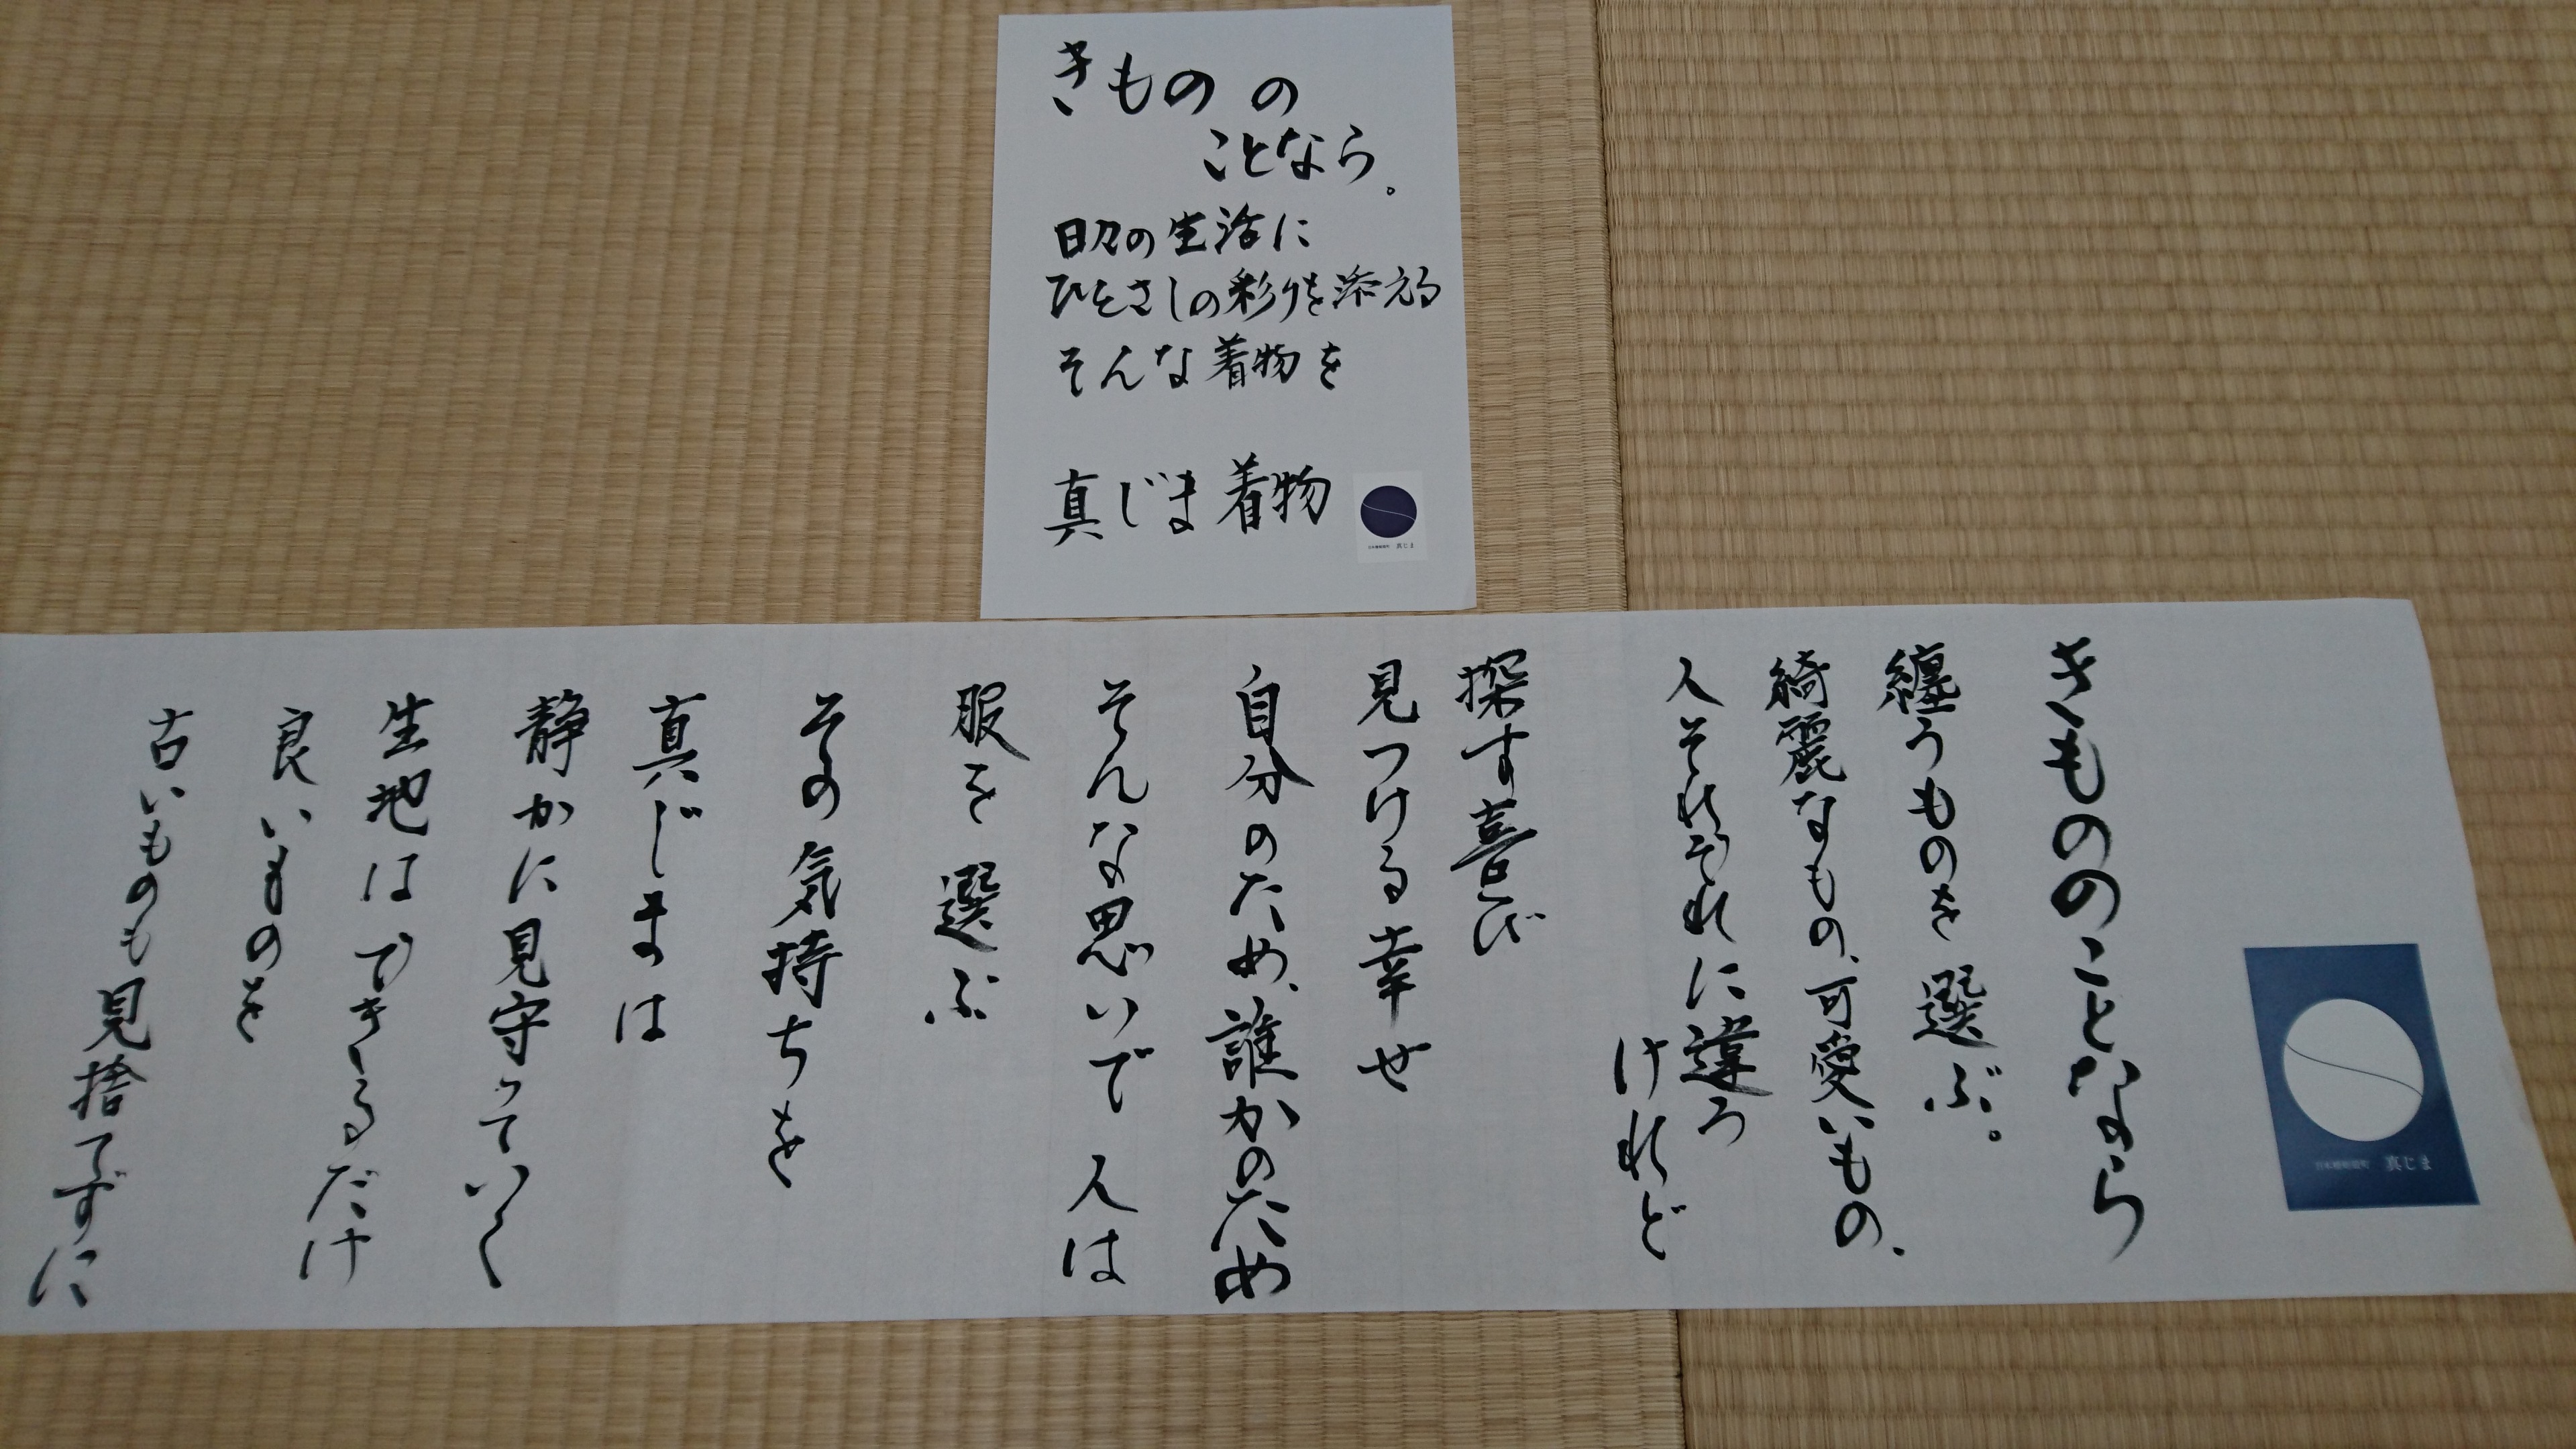 きものの
ことなら。
日々の生活に
ひとさしの彩りを添える
そんな着物を
真じま着物
真じま
きもののことなら
纏うものを選ぶ。
綺麗なもの、可愛いもの、
人それぞれに違う
けれど
探す喜び
見つける幸せ
自分のため、誰かのため
そんな思いで人は
服を選ぶ
その気持ちを
真じまは
静かに見守っていく
生地はできるだけ
良いものを
古いものも見捨てずに
真じま